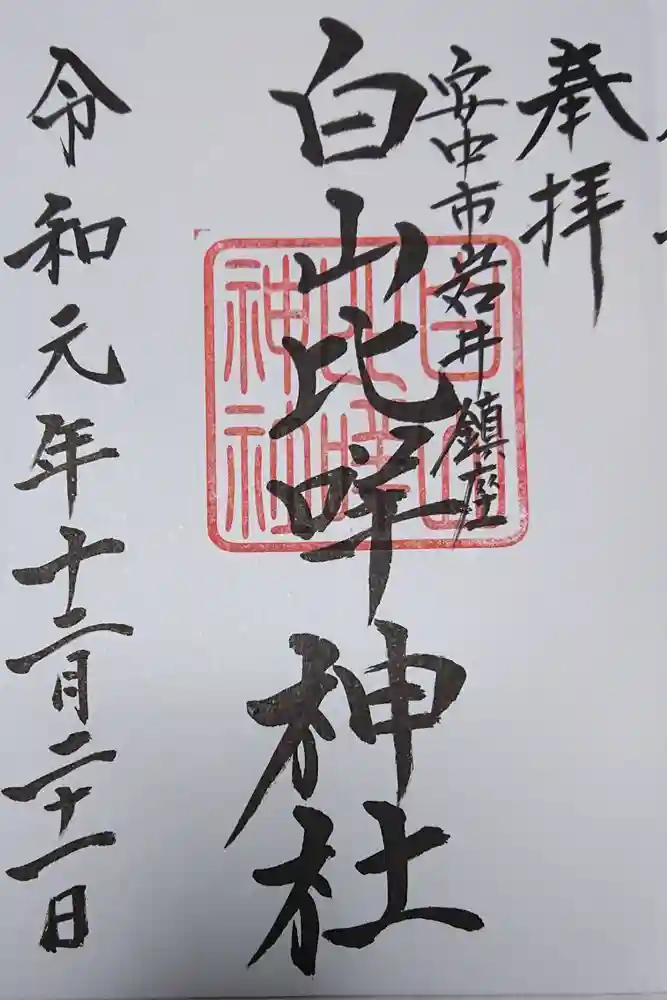 奉拝
安中市岩井鎮座
白山比咩神社
白山比咩神社
令和元年十二月二十一日